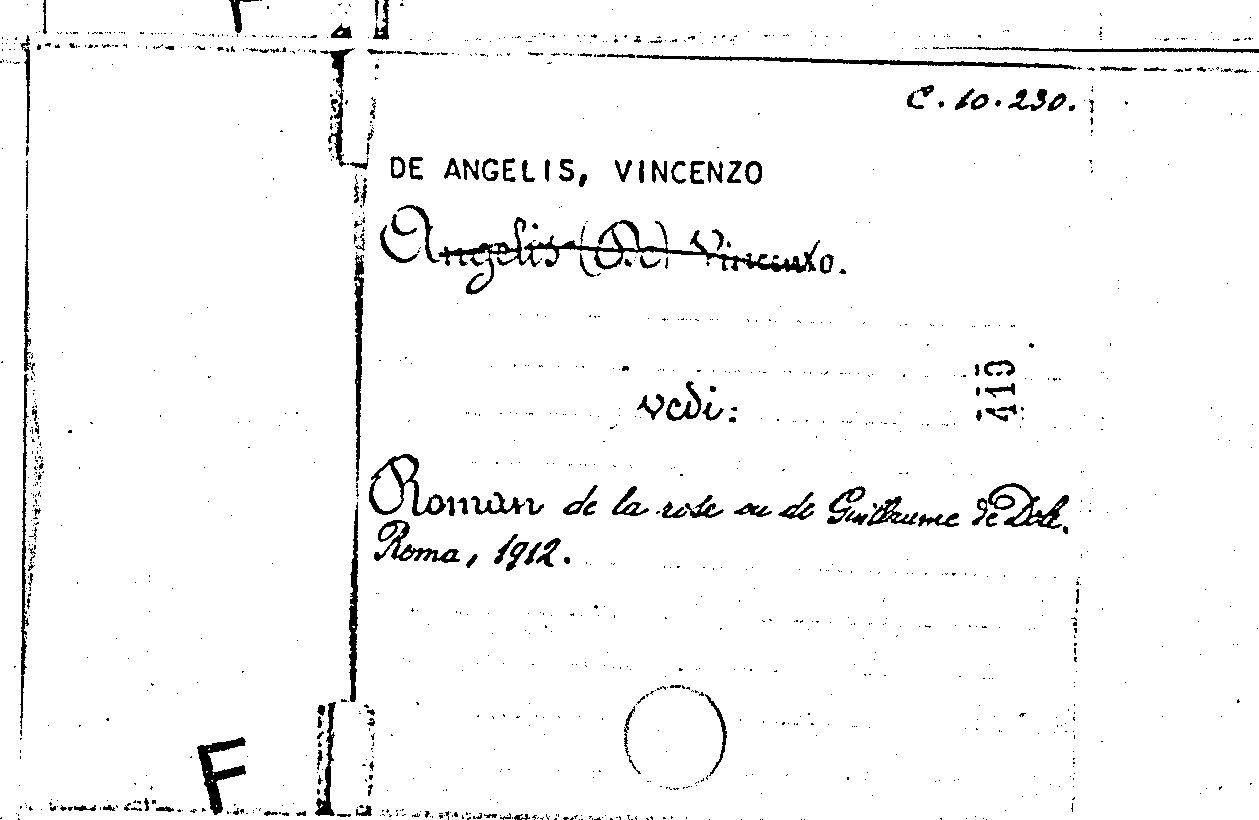 C. 10. 230.
DE ANGELIS, VINCENZO
Angelis (De) Vincenzo.
419
vedi:
Roman de la rose ou de Guillaume de Dole.
Roma, 1912.
F